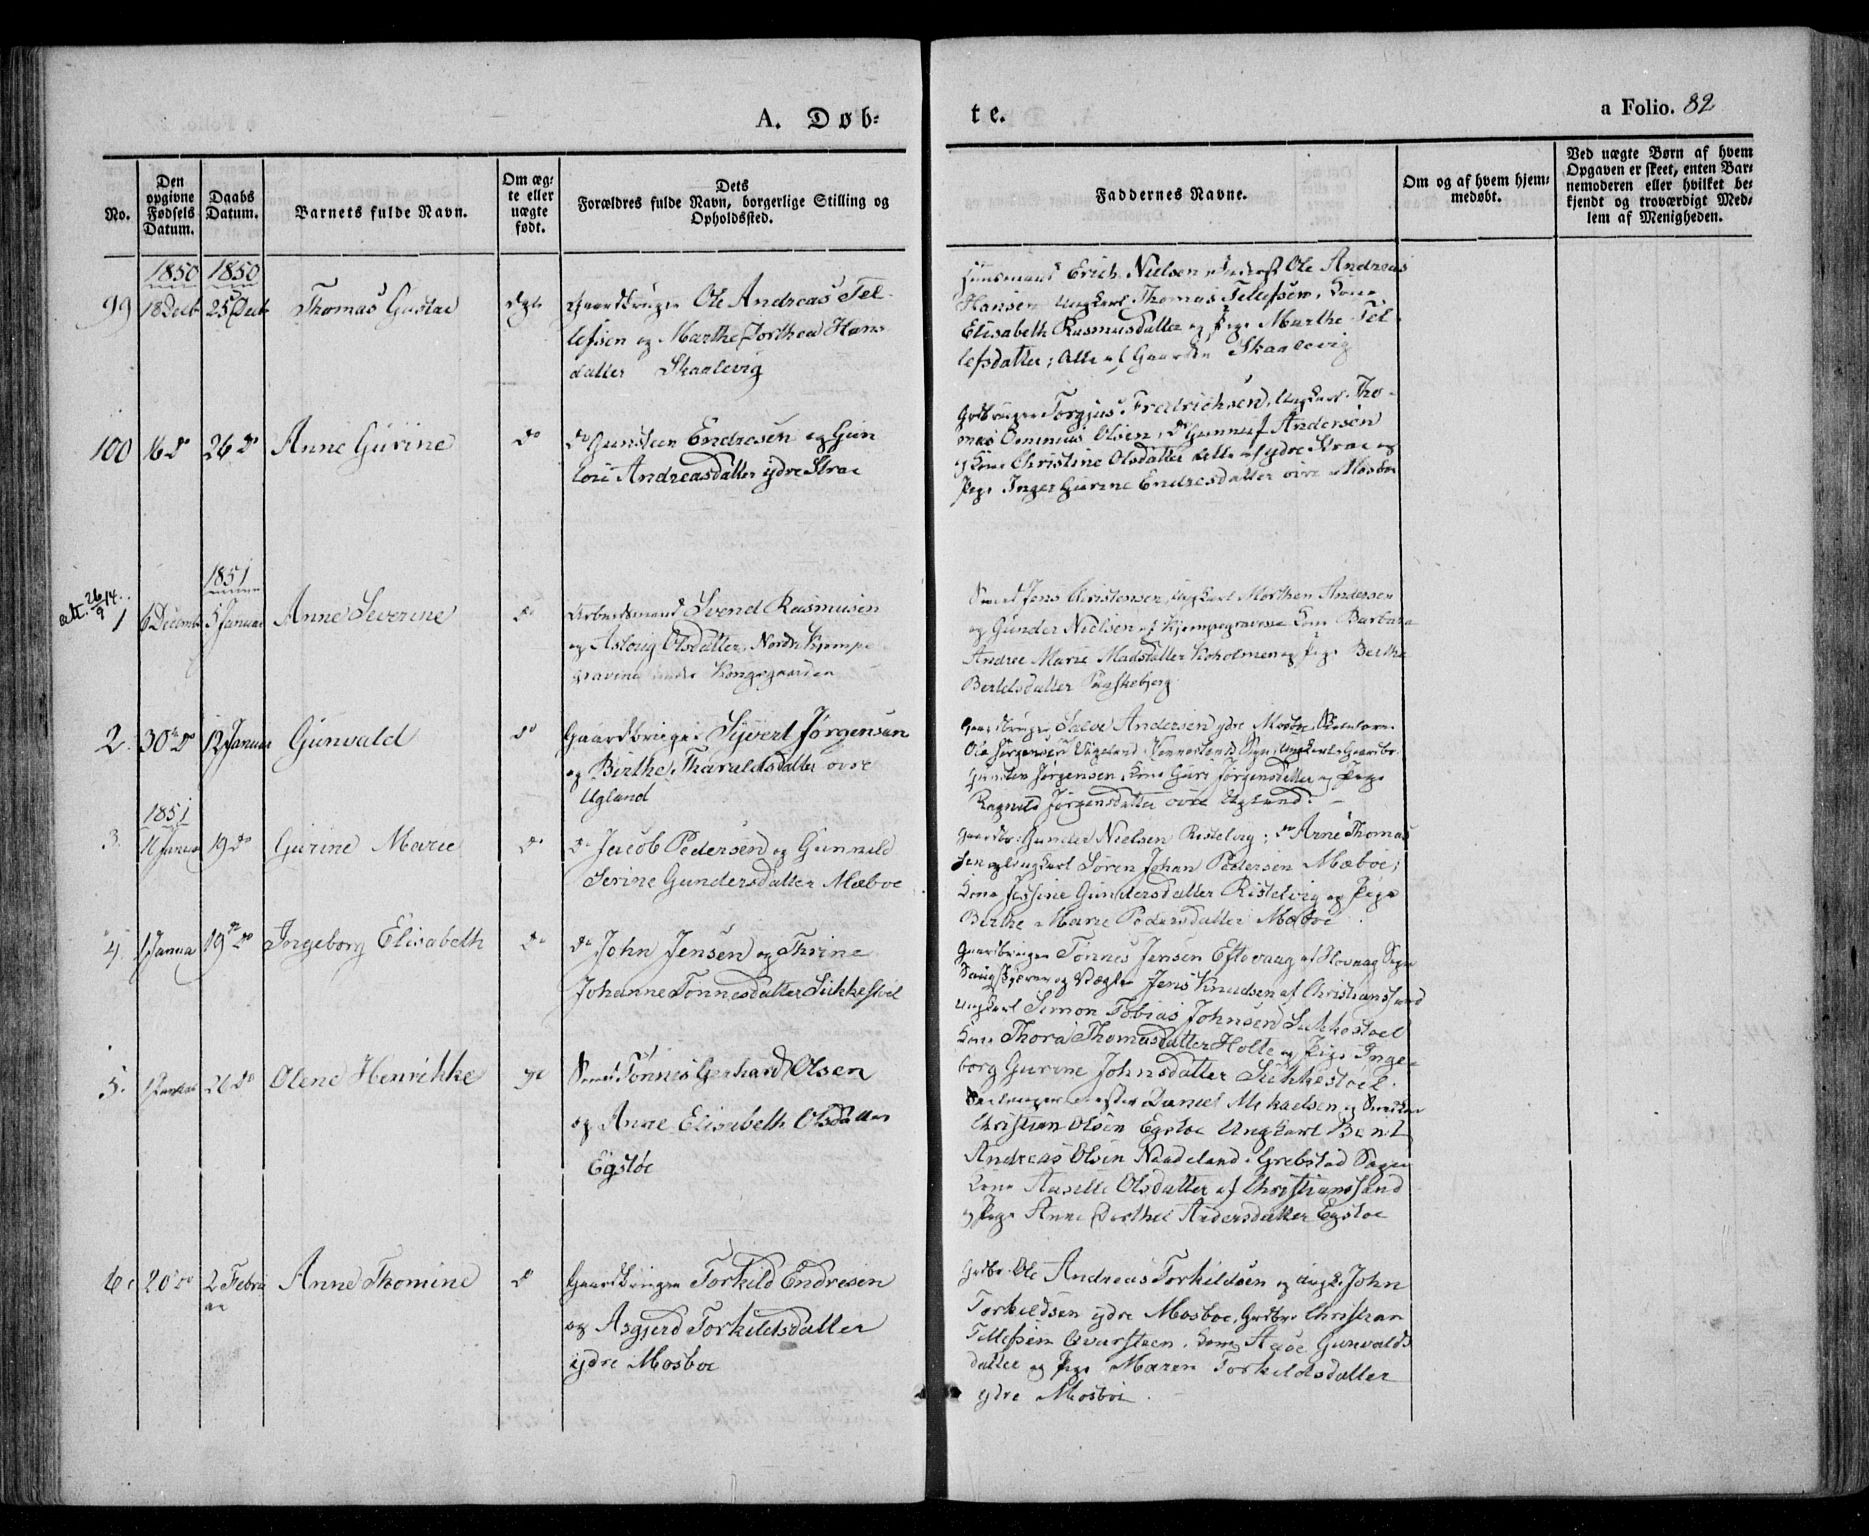 A. Døb-
te.
a Folio. 82
No.
Den
opgivne
Fødsels
Datum.
Daabs
Datum.
Barnets fulde Navn.
Om æg-
te eller
uægte
født.
Dets
Forældres fulde Navn, borgerlige Stilling og
Opholdssted.
Faddernes Navne.
Om og af hvem hjem-
medøbt.
Ved uægte Børn af hvem
Opgaven er skeet, enten Bar-
nemoderen eller hvilket be-
kjendt og troværdigt Med-
lem af Menigheden.
1850 1850
99 18 Decb 25 Decb Thomas Gustav
Gaardbruger Ole Andreas Tel-
lefsen og Marthe Dorthea Hans
datter Skaalevig
Erich Nielsen Ole Andreas
Hansen Ungkarl Thomas Tellefsen, Kone
Elisabeth Rasmusdatter og Pige Marthe Tel
lefsdatter; Alle af Gaarden Skaalevig
100 16 do 26 do Anne Gurine do
do Gunsteen Endresen og Gun
Andreasdatter ydre Straie
Grdbruger Torgjus Fredrichsen, Ungkarl Tho-
mas Olsen, do Gunnuf Andersen
Kone Christine Olsdatter alle af ydre Straie og
Pige Inger Gurine Endresdatter Mosboe
1851
att. 26/9 14.
1 6 Decemb 5 Januar Anne Severine do
Arbeidsmand Svend Rasmusen
og Asloug Olsdatter, Nordr. Kjempe
gravene under Kongsgaarden
Jens Christensen, Ungkarl Morthen Andersen
og Gunder Nielsen af Kjempegravene Kone Barbara
Andrea Marie Madsdatter Koholmen og Pige Berthe
Bertelsdatter
2. 30te do 12 Januar Gunvald do
Gaardbruger Syvert Jørgensen
og Birthe Tharaldsdatter øvre
Ugland
Gaardbruger Salve Andersen ydre Mosboe,
Ole Jørgensen Vigeland, Sogn, Ungkarl Gaardbr.
Gunsten Jørgensen, Kone Guri Jørgensdatter og Pige
Ragnild Jørgensdatter øvre Ugland.
1851
3. 11 Januar 19 do Gurine Marie do
do Jacob Pedersen og Gunnild
Serine Gundersdatter Mæboe
Gaardbr: Gunder Nielsen Ristelvig; do Arne Thomas
sen og Ungkarl Søren Johan Pedersen Mæboe;
Kone Jessine Gundersdatter Ristelvig og Pige
Berthe Marie Pedersdatter Mæboe
4. 1 Janua 19de do Ingeborg Elisabeth do
do John Jensen og Thrine
Johanne Tønnesdatter Sukkestøel
Gaardbruger Tønnes Jensen Eftevaag af Høvaag Sogn
og Vægter Jens Knudsen af Christianssand
Ungkarl Simon Tobias Johnsen Sukkestøel
Kone Thora Thomasdatter Holte og Pige Inge-
borg Gurine Johnsdatter Sukkestøel.
5. 26 do Olene Henrikke
Tønnes Gerhard Olsen
og Anne Elisabeth Olsdatter
Egstøe
Daniel Mikaelsen og
Christian Olsen Egstøe Ungkarl Bent
Andreas Olsen Naadeland i Grebstad Sogn
Kone Olsdatter af Christianssand
og Pige Anne Dorthee Andersdatter Egstøe
6. 20 do 2 Febru
ar
Anne Thomine do
Gaardbruger Torkild Endresen
og Asgjerd Torkildsdatter
ydre Mosboe
Grdbr. Ole Andreas Torkildsen og Ungk. John
Torkildsen ydre Mosboe, Grdbr. Christian
Tellefsen Qvarsteen, Kone Gunvalds
datter og Pige Maren Torkildsdatter
ydre Mosboe.